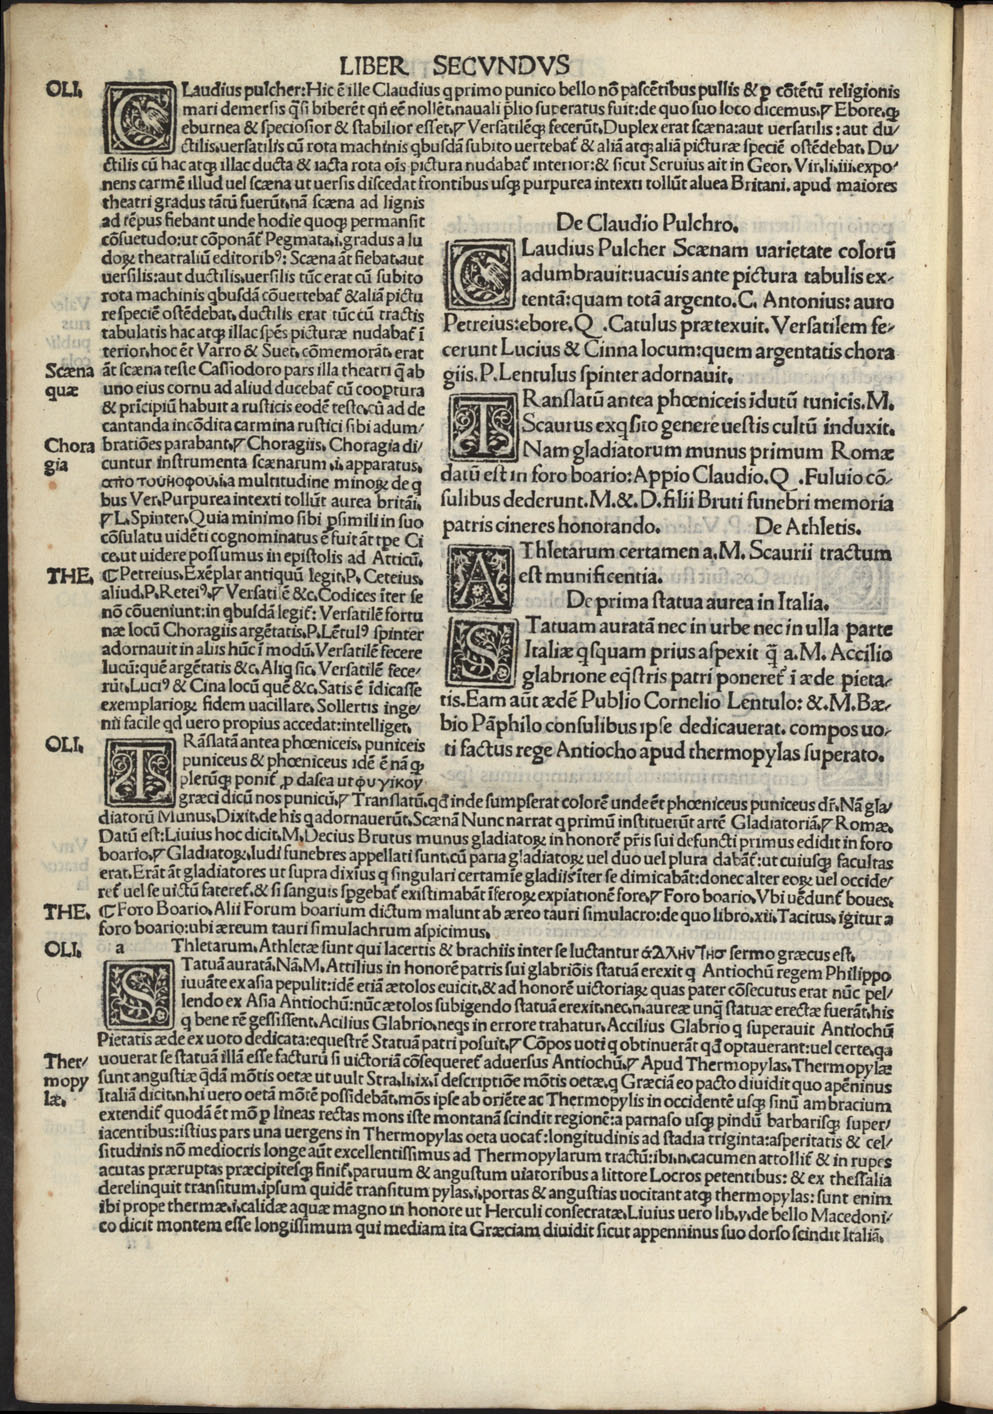 LIBER SECVNDVS
OLI. CLaudius pulcher: Hic ē ille Claudius q primo punico bello nō pascētibus pullis & ꝑ cōtētū religionis
mari demersis q̄si biberēt qn̄ eē nollēt, nauali p̄lio superatus fuit: de quo suo loco dicemus, Ebore, qꝫ
eburnea & speciosior & stabilior esset, Versatilēqꝫ fecerūt, Duplex erat scæna: aut uersatilis: aut du/
ctilis, uersatilis cū rota machinis qbusdā subito uertebat̄ & aliā atqꝫ aliā picturæ speciē ostēdebat, Du/
ctilis cū hac atqꝫ illac ducta & iacta rota oīs pictura nudabat̄ interior: & sicut Seruius ait in Geor. Vir. li. iii. expo/
nens carmē illud uel scæna ut uersis discedat frontibus usqꝫ purpurea intexti tollūt aluea Britani. apud maiores
theatri gradus tātū fuerūt, nā scæna ad lignis
ad tēpus fiebant unde hodie quoqꝫ permansit
cōsuetudo: ut cōponāt̄ Pegmata. i. gradus a lu
doꝝ theatraliū editoribꝰ: Scæna āt fiebat, aut
uersilis: aut ductilis, uersilis tūc erat cū subito
rota machinis qbusdā cōuertebat̄ & aliā pictu
re speciē ostēdebat, ductilis erat tūc cū tractis
tabulatis hac atqꝫ illac spēs picturæ nudabat̄ ī
terior, hoc ēt Varro & Suet. cōmemorāt, erat
Scæna quæ
āt scæna teste Cassiodoro pars illa theatri q̄ ab
uno eius cornu ad aliud ducebat̄ cū cooptura
& prīcipiū habuit a rusticis eodē teste, cū ad de
cantanda incōdita carmina rustici sibi adum/
Choragia
bratiōes parabant, Choragiis, Choragia di/
cuntur instrumenta scænarum .i. apparatus,
multitudine minoꝝ de q
bus Ver. Purpurea intexti tollūt aurea britāi,
L. Spinter, Quia minimo sibi ꝑsimili in suo
cōsulatu uidēti cognominatus ē fuit āt tpe Ci
ce, ut uidere possumus in epistolis ad Atticū,
THE. ℂ Petreius, Exēplar antiquū legit, P. Ceteius,
aliud, P. Reteiꝰ, Versatilē &c. Codices īter se
nō cōueniunt: in qbusdā legit̄: Versatilē fortu
næ locū Choragiis argētatis, P. Lētulꝰ spinter
adornauit in aliis hūc ī modū, Versatilē fecere
lucū: quē argētatis &c. Aliq sic, Versatilē fece/
rūt, Luciꝰ & Cina locū quē &c. Satis ē īdicasse
exemplarioꝝ fidem uacillare, Sollertis inge/
nii facile qd uero propius accedat: intelliget,
De Claudio Pulchro.
CLaudius Pulcher Scænam uarietate colorū
adumbrauit: uacuis ante pictura tabulis ex-
tentā: quam totā argento. C. Antonius: auro
Petreius: ebore. Q. Catulus prætexuit. Versatilem fe-
cerunt Lucius & Cinna locum: quem argentatis chora
giis. P. Lentulus spinter adornauit.
TRanslatū antea phœniceis īdutū tunicis. M.
Scaurus exqsito genere uestis cultū induxit.
Nam gladiatorum munus primum Romæ
datū est in foro boario: Appio Claudio. Q. Fuluio cō-
sulibus dederunt. M. &. D. filii Bruti funebri memoria
patris cineres honorando. De Athletis.
AThletarum certamen a. M. Scaurii tractum
est munificentia.
De prima statua aurea in Italia.
STatuam auratā nec in urbe nec in ulla parte
Italiæ qsquam prius aspexit q̄ a. M. Accilio
glabrione eq̄stris patri poneret̄ ī æde pieta-
tis. Eam aūt ædē Publio Cornelio Lentulo: &. M. Bæ-
bio Pāphilo consulibus ipse dedicauerat. compos uo-
ti factus rege Antiocho apud thermopylas superato.
OLI. TRāslatā antea phœniceis, puniceis
puniceus & phœniceus idē ē nā qꝫ
plerūqꝫ ponit̄ ꝓ dasea ut φυγικου
græci dicū nos punicū, Translatū, qd̄ inde sumpserat colorē unde ēt phœniceus puniceus dr̄. Nā gla/
diatorū Munus, Dixit, de his q adornauerūt, Scænā Nunc narrat q primū instituerūt artē Gladiatoriā, Romæ,
Datū est: Liuius hoc dicit, M. Decius Brutus munus gladiatoꝝ in honorē pr̄is sui defuncti primus edidit in foro
boario, Gladiatoꝝ, ludi funebres appellati sunt, cū paria gladiatoꝝ uel duo uel plura dabāt̄: ut cuiusqꝫ facultas
erat, Erāt āt gladiatores ut supra dixīus q singulari certamīe gladiis īter se dimicabāt: donec alter eoꝝ uel occide/
ret̄ uel se uictū fateret̄, & si sanguis spgebat̄ existimabāt īferoꝝ expiationē fore, Foro boario, Vbi uēdunt̄ boues,
THE. ℂ Foro Boario, Alii Forum boarium dictum malunt ab æreo tauri simulacro: de quo libro, xii, Tacitus, igitur a
foro boario: ubi æreum tauri simulachrum aspicimus,
OLI. a Thletarum, Athletæ sunt qui lacertis & brachiis inter se luctantur sermo græcus est,
STatuā auratā, Nā, M. Attilius in honorē patris sui glabriōis statuā erexit q Antiochū regem Philippo
iuuāte ex asia pepulit: idē etiā ætolos euicit, & ad honorē uictoriaꝝ quas pater cōsecutus erat nūc pel/
lendo ex Asia Antiochū: nūc ætolos subigendo statuā erexit, nec, n, aureæ unq̄ statuæ erectæ fuerāt, his
q bene rē gessissent, Acilius Glabrio, neqs in errore trahatur, Accilius Glabrio q superauit Antiochū
Pietatis æde ex uoto dedicata: equestrē Statuā patri posuit, Cōpos uoti q obtinuerāt qd̄ optauerant: uel certe, qa
uouerat se statuā illā esse facturū si uictoriā cōsequeret̄ aduersus Antiochū, Apud Thermopylas, Thermopylæ
Thermopylæ.
sunt angustiæ q̄dā mōtis oetæ ut uult Stra. li. ix. ī descriptiōe mōtis oetæ, q Græciā eo pacto diuidit quo apēninus
Italiā dicit, n, hi uero oetā mōtē possidebāt, mōs ipse ab oriēte ac Thermopylis in occidentē usqꝫ sinū ambracium
extendit̄ quodā ēt mō ꝑ lineas rectas mons iste montanā scindit regionē: a parnaso usqꝫ pindū barbarisqꝫ super/
iacentibus: istius pars una uergens in Thermopylas oeta uocat̄: longitudinis ad stadia triginta: asperitatis & cel/
situdinis nō mediocris longe aūt excellentissimus ad Thermopylarum tractū: ibi, n, cacumen attollit̄ & in rupes
acutas præruptas præcipitesqꝫ finit̄, paruum & angustum uiatoribus a littore Locros petentibus: & ex thessalia
derelinquit transitum, ipsum quidē transitum pylas, i, portas & angustias uocitant atqꝫ thermopylas: sunt enim
ibi prope thermæ, i, calidæ aquæ magno in honore ut Herculi consecratæ, Liuius uero lib, v, de bello Macedoni/
co dicit montem esse longissimum qui mediam ita Græciam diuidit sicut appenninus suo dorso scindit Italiā,